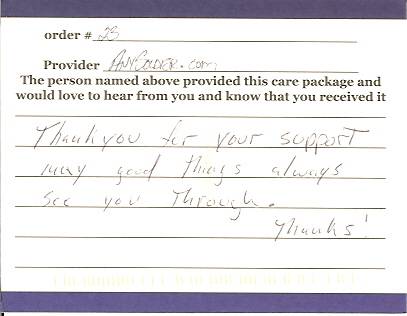 order # 23
Provider AnySoldier.com
The person named above provided this care package and
would love to hear from you and know that you received it
Thank you for your support
may good things always
see you through.
Thanks!